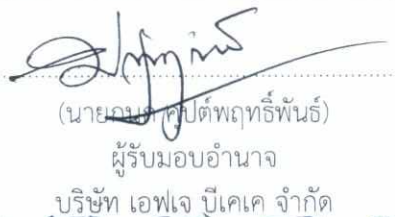 พฤทธิ์พันธ์)
ผู้รับมอบอำนาจ
บริษัท เอฟเจ บีเคเค จำกัด